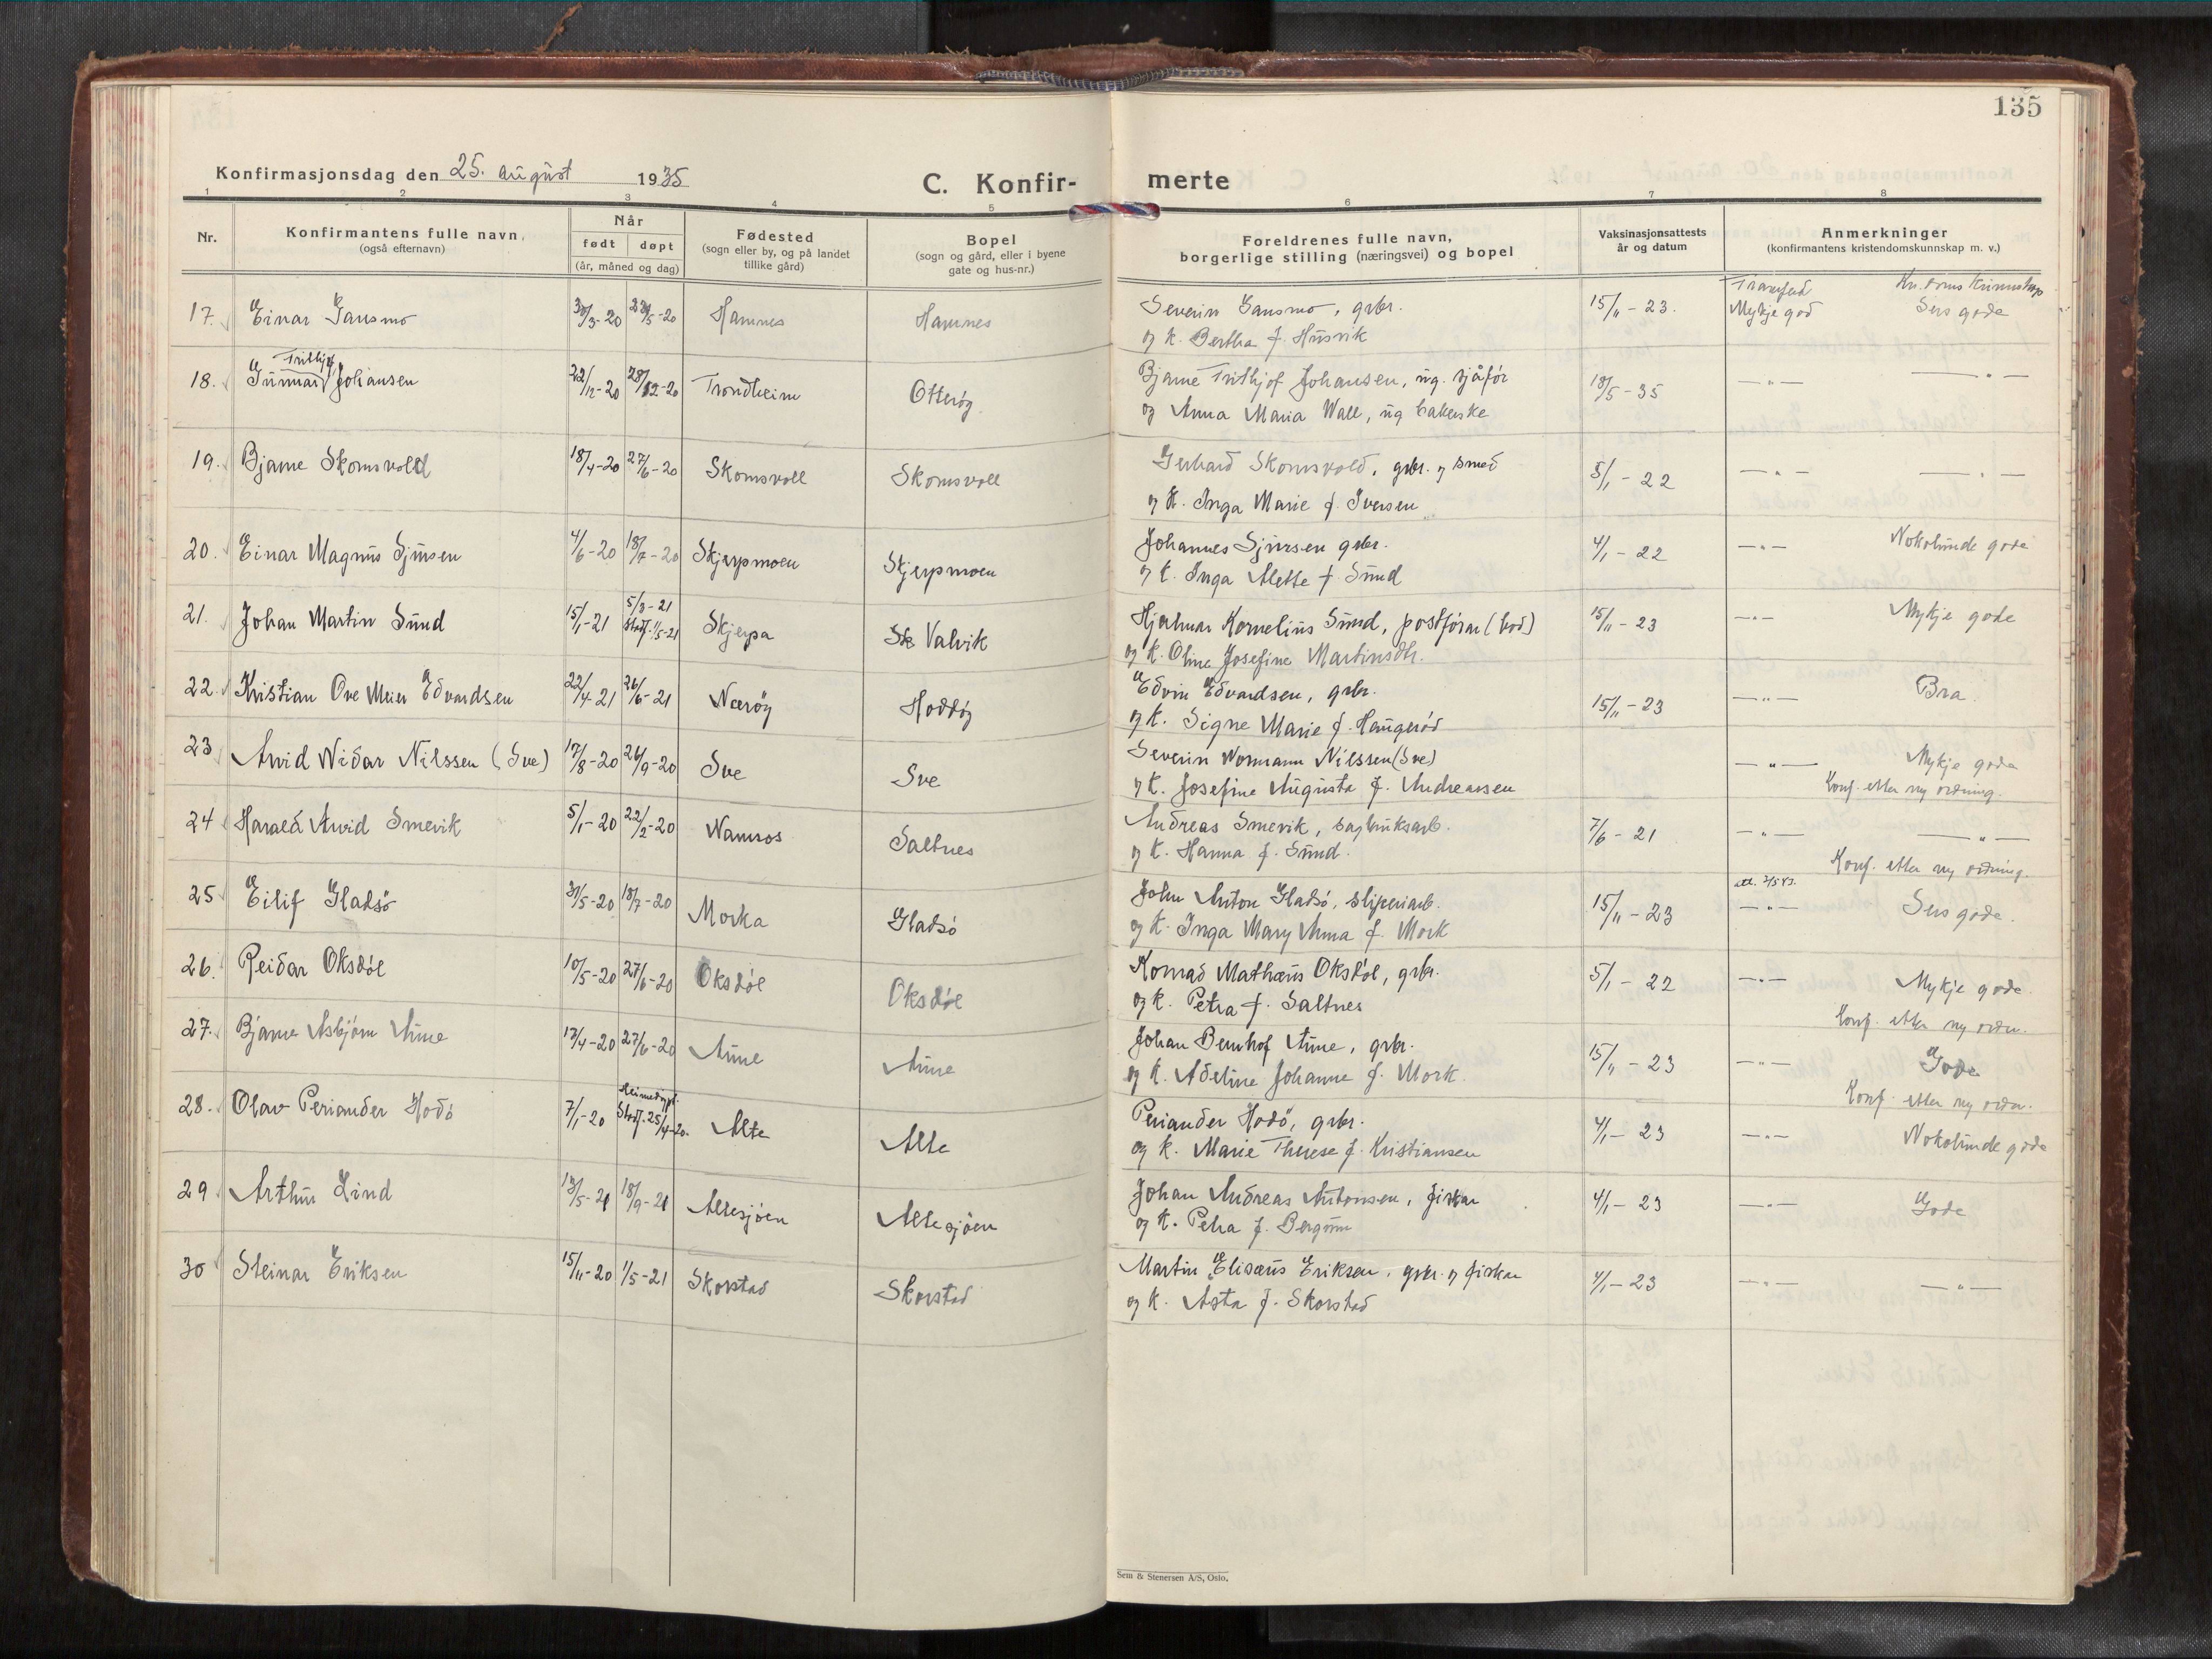 135
Konfirmasjonsdag den 25. august 1935
C. Konfir- merte
1 2 3 4 5 6 7 8
Nr.
Konfirmantens fulle navn,
(også efternavn)
Når
født døpt
(år, måned og dag)
Fødested
(sogn eller by, og på landet
tillike gård)
Bopel
(sogn og gård, eller i byene
gate og hus-nr.)
Foreldrenes fulle navn,
borgerlige stilling (næringsvei) og bopel
Vaksinasjonsattests
år og datum
Anmerkninger
(konfirmantens kristendomskunnskap m. v.)
Kr. doms kunnskap
17. Einar Gansmo 30/3-20 24/5-20 Hamnes Hamnes Severin Gansmo, grbr. 15/11-23. Mykje god Sers gode
og k. Bertha f. Husvik
Trithjof
18. Gunnar Johansen 22/12-20 28/12-20 Trondheim Otterøy Bjarne Trithjof Johansen, ug. sjåfør 18/5-35 —"— —"—
og Anna Maria Wall, ug bakerske
19. Bjarne Skomsvold 18/4-20 27/6-20 Skomsvoll Skomsvoll Gerhard Skomsvold, grbr. og smed 5/1-22 —"— —"—
og k. Inga Marie f. Iversen
20. Einar Magnus Sjursen 4/6-20 18/7-20 Skjerpmoen Skjerpmoen Johannes Sjursen grbr. 4/1-22 —"— Nokolunde gode
og k. Inga Alette f. Sund
21. Johan Martin Sund 15/1-21 5/3-21 Skjerpa Valvik Hjalmar Kornelius Sund, postførar (bod) 15/11-23 —"— Mykje gode
Stadf. 1/5-21
og k. Oline Josefine Martinsdtr.
22. Kristian Ove Meier Edvardsen 22/4-21 26/6-21 Nærøy Hoddøy Edvin Edvardsen, grbr. 15/11-23 —"— Bra
og k. Signe Marie f. Haugerød
23 Arvid Nidar Nilssen (Sve) 17/8-20 26/9-20 Sve Sve Severin Normann Nilssen (Sve) —"— Mykje gode
og k. Josefine Augusta f. Andreassen Konf. etter ny ordning.
24 Harald Arvid Smevik 5/1-20 22/2-20 Namsos Saltnes Andreas Smevik, sagbruksarb. 7/6-21 —"— —"—
og k. Hanna f. Sund. Konf. etter ny ordning.
25 Eilif Gladsø 31/5-20 18/7-20 Morka Gladsø John Anton Gladsø, sliperiarb. 15/11-23 —"— Sers gode.
att. 2/5 43.
og k. Inga Mary Anna f. Mork
26. Reidar Oksdøl 10/5-20 27/6-20 Oksdøl Oksdøl Konrad Mathæus Oksdøl, grbr. 5/1-22 —"— Mykje gode.
og k. Petra f. Saltnes Konf. etter ny ordn.
27. Bjarne Asbjørn Aune 13/4-20 27/6-20 Aune Aune Johan Bernhof Aune, grbr. 15/11-23 —"— Gode
og k. Adeline Johanne f. Mork Konf. etter ny ordn.
28. Olav Periander Hodø 7/1-20 Heimedøpt. Alte Alte Periander Hodø, grbr. 4/1-23 —"— Nokolunde gode
Stadf. 25/4-20.
og k. Marie Therese f. Kristiansen
29 Arthur Lind 13/5-21 18/9-21 Altesjøen Altesjøen Johan Andreas Antonsen, fiskar 4/1-23 —"— Gode
og k. Petra f. Bergum
30 Steinar Eriksen 15/11-20 1/5-21 Skorstad Skorstad Martin Elisæus Eriksen, grbr. og fiskar 4/1-23 —"— —"—
og k. Asta f. Skorstad
Sem & Stenersen A/S, Oslo.